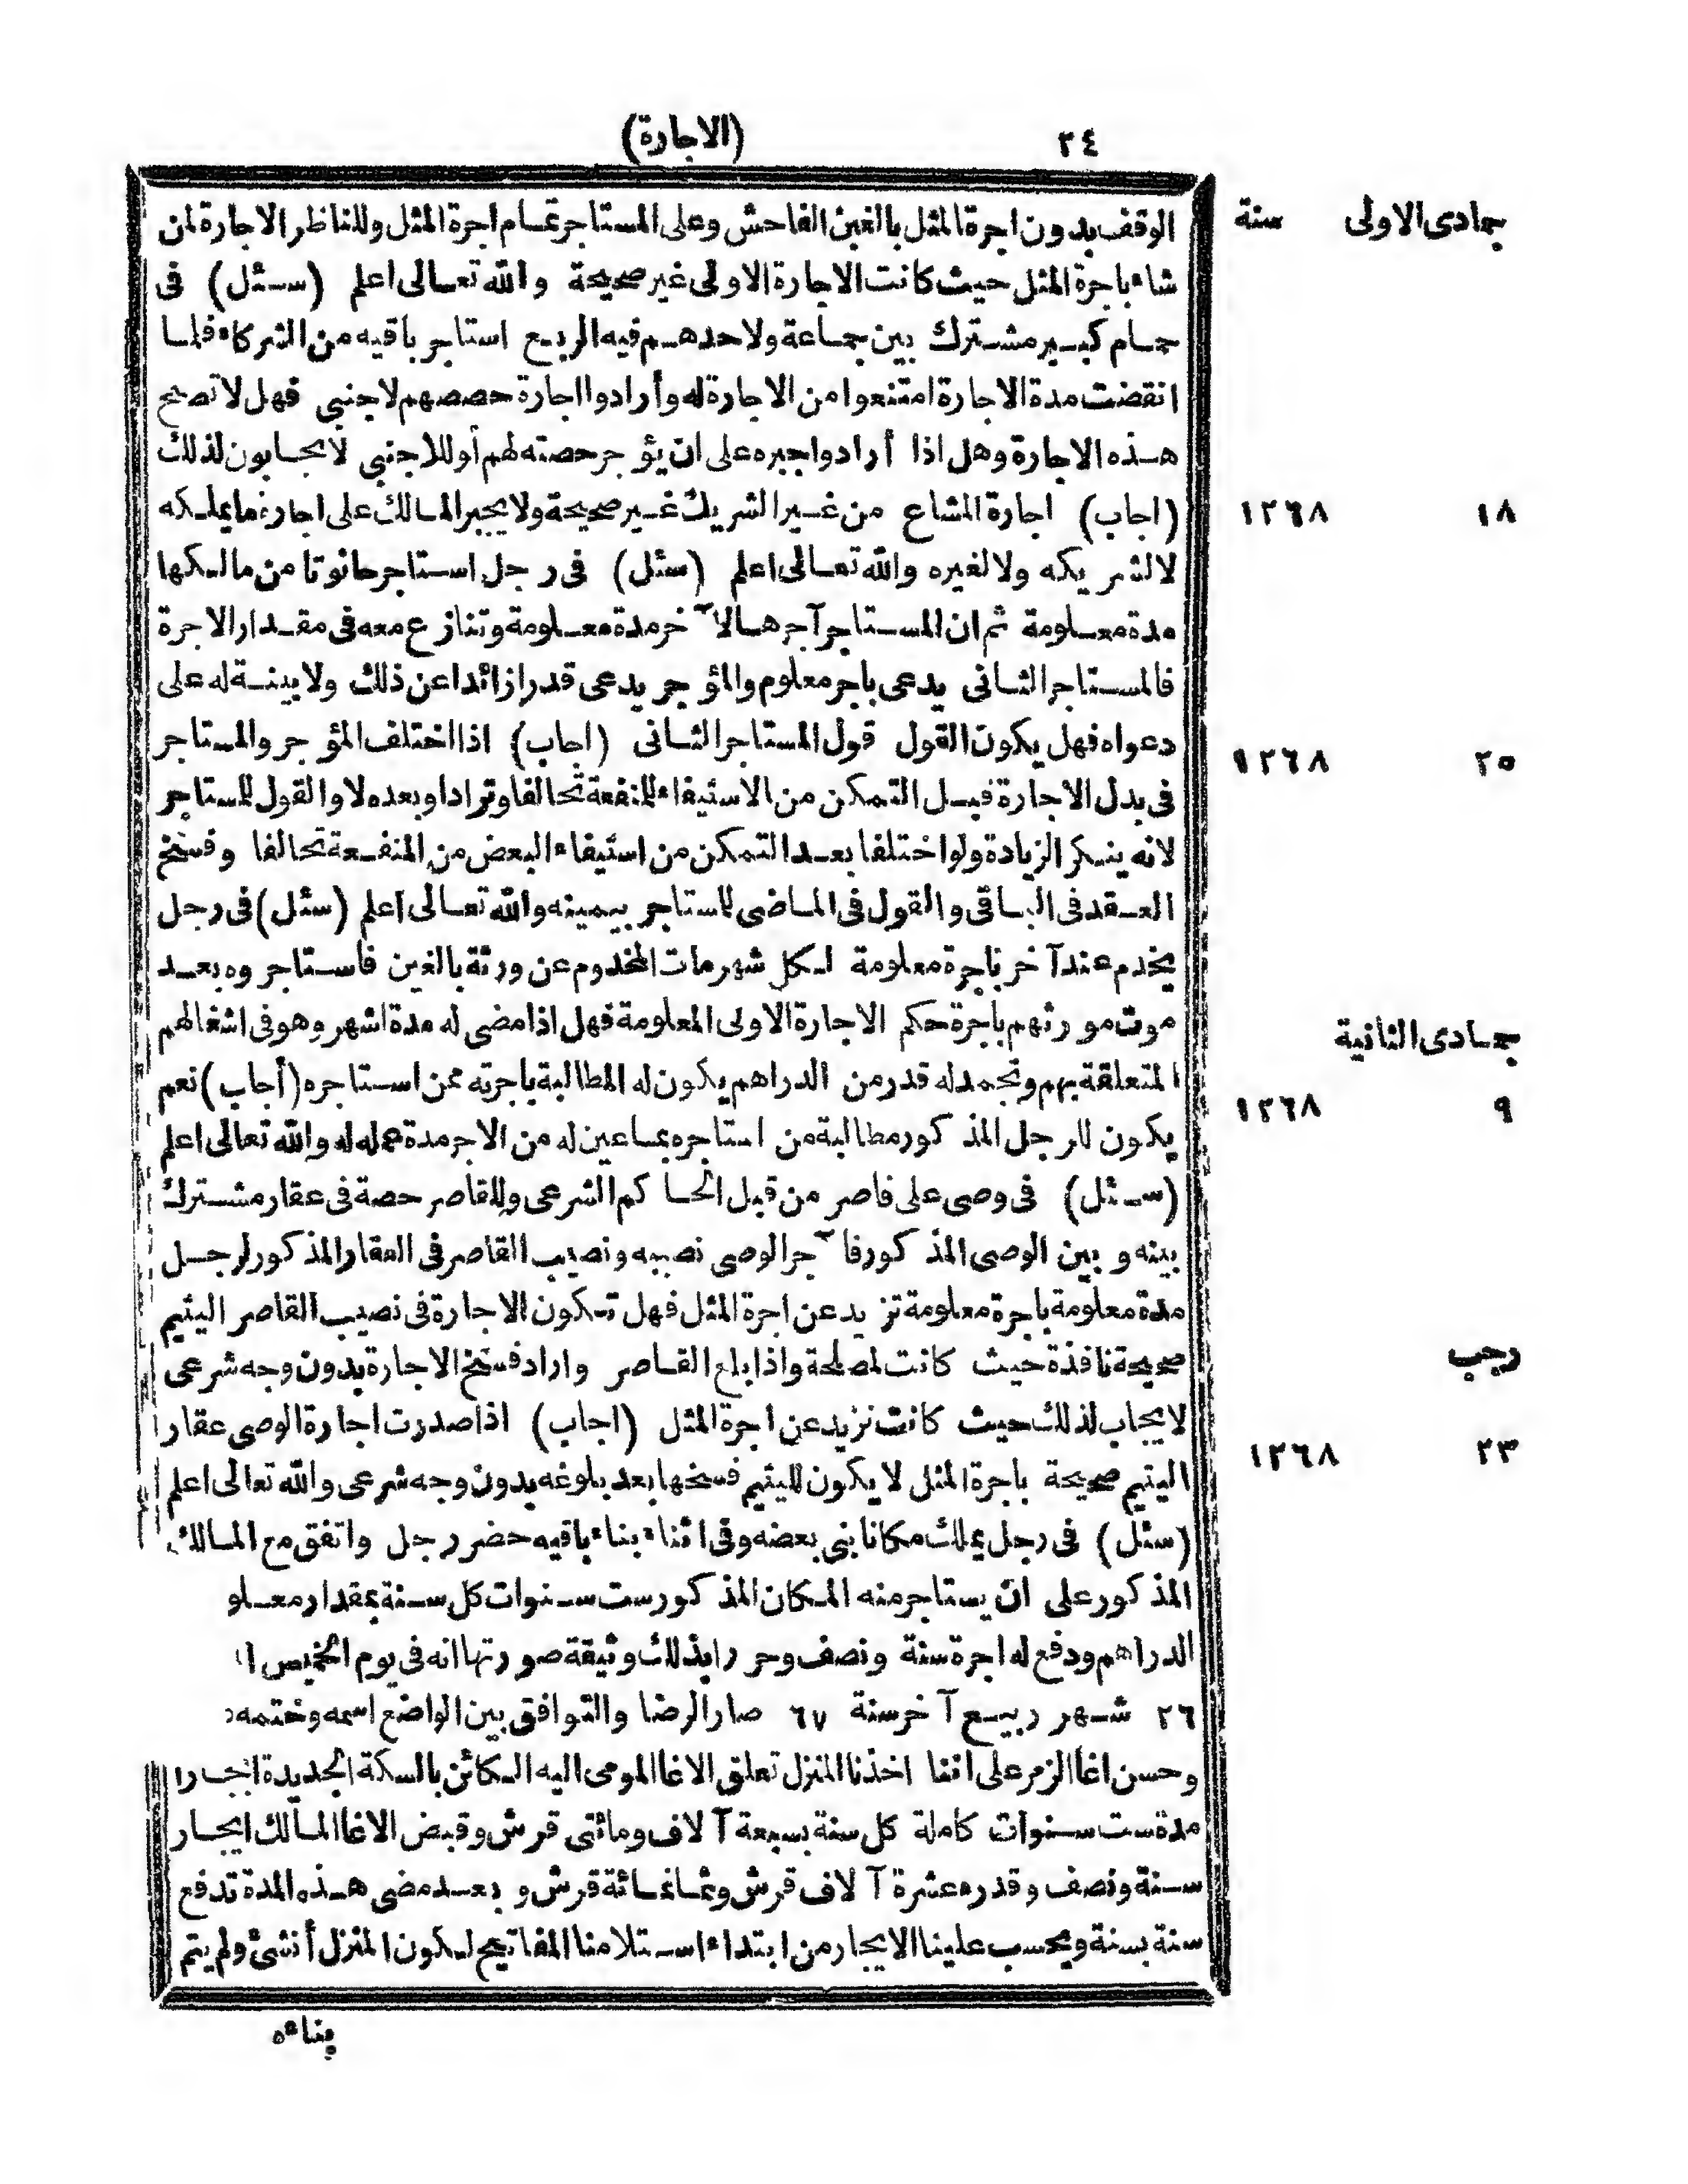 ٢٤
(الاجارة)
جمادى الاولى سنة
الوقف بدون اجرة المثل بالغبن الفاحش وعلى المستاجر تمام اجرة المثل وللناظر الاجارة لمن
شاء باجرة المثل حيث كانت الاجارة الاولى غير صحيحة والله تعالى اعلم (سئل) فى
حمام كبير مشترك بين جماعة ولاحدهم فيه الربع استاجر باقيه من الشركاء فلما
انقضت مدة الاجارة امتنعوا من الاجارة له وأرادوا اجارة حصصهم لاجنبي فهل لا تصح
هذه الاجارة وهل اذا أرادوا جبره على ان يؤجر حصته لهم أو للاجنبي لا يجابون لذلك
١٨ ١٢٦٨
(اجاب) اجارة المشاع من غير الشريك غير صحيحة ولا يجبر المالك على اجارة ما يملكه
لا لشريكه ولا لغيره والله تعالى اعلم (سئل) فى رجل استاجر حانوتا من مالكها
مدة معلومة ثم ان المستاجر آجرها لآخر مدة معلومة وتنازع معه فى مقدار الاجرة
فالمستاجر الثانى يدعى باجر معلوم والمؤجر يدعى قدرا زائدا عن ذلك ولا بينة له على
٢٥ ١٢٦٨
دعواه فهل يكون القول قول المستاجر الثانى (اجاب) اذا اختلف المؤجر والمستاجر
فى بدل الاجارة قبل التمكن من الاستيفاء للمنفعة تحالفا وترادا وبعده لا والقول للمستاجر
لانه ينكر الزيادة ولو اختلفا بعد التمكن من استيفاء البعض من المنفعة تحالفا وفسخ
العقد فى الباقى والقول فى الماضى للمستاجر بيمينه والله تعالى اعلم (سئل) فى رجل
يخدم عند آخر باجرة معلومة لكل شهر مات المخدوم عن ورثة بالغين فاستاجروه بعد
جمادى الثانية
موت مورثهم باجرة حكم الاجارة الاولى المعلومة فهل اذا مضى له مدة اشهر وهو فى اشغالهم
المتعلقة بهم وتجمد له قدر من الدراهم يكون له المطالبة باجرته ممن استاجره (أجاب) نعم
٩ ١٢٦٨
يكون للرجل المذكور مطالبة من استاجره بما عين له من الاجر مدة عمله له والله تعالى اعلم
(سئل) فى وصى على قاصر من قبل الحاكم الشرعى وللقاصر حصة فى عقار مشترك
بينه وبين الوصى المذكور فآجر الوصى نصيبه ونصيب القاصر فى العقار المذكور لرجل
مدة معلومة باجرة معلومة تزيد عن اجرة المثل فهل تكون الاجارة فى نصيب القاصر اليتيم
رجب
صحيحة نافذة حيث كانت لمصلحة واذا بلغ القاصر واراد فسخ الاجارة بدون وجه شرعى
لا يجاب لذلك حيث كانت تزيد عن اجرة المثل (اجاب) اذا صدرت اجارة الوصى عقار
٢٣ ١٢٦٨
اليتيم صحيحة باجرة المثل لا يكون لليتيم فسخها بعد بلوغه بدون وجه شرعى والله تعالى اعلم
(سئل) فى رجل يملك مكانا بنى بعضه وفى اثناء بناء باقيه حضر رجل واتفق مع المالك
المذكور على ان يستاجر منه المكان المذكور ست سنوات كل سنة بمقدار معلو
الدراهم ودفع له اجرة سنة ونصف وحررا بذلك وثيقة صورتها انه فى يوم الخميس
٢٦ شهر ربيع آخر سنة ٦٧ صار الرضا والتوافق بين الواضع اسمه وختمه
وحسن اغا الزمر على اننا اخذنا المنزل تعلق الاغا المومى اليه الكائن بالسكة الجديدة
مدة ست سنوات كاملة كل سنة بسبعة آلاف ومائتى قرش وقبض الاغا المالك ايجار
سنة ونصف وقدره عشرة آلاف قرش وثمانمائة قرش وبعد مضى هذه المدة تدفع
سنة بسنة ويحسب علينا الايجار من ابتداء استلامنا المفاتيح لكون المنزل أنشئ ولم يتم
بناءه